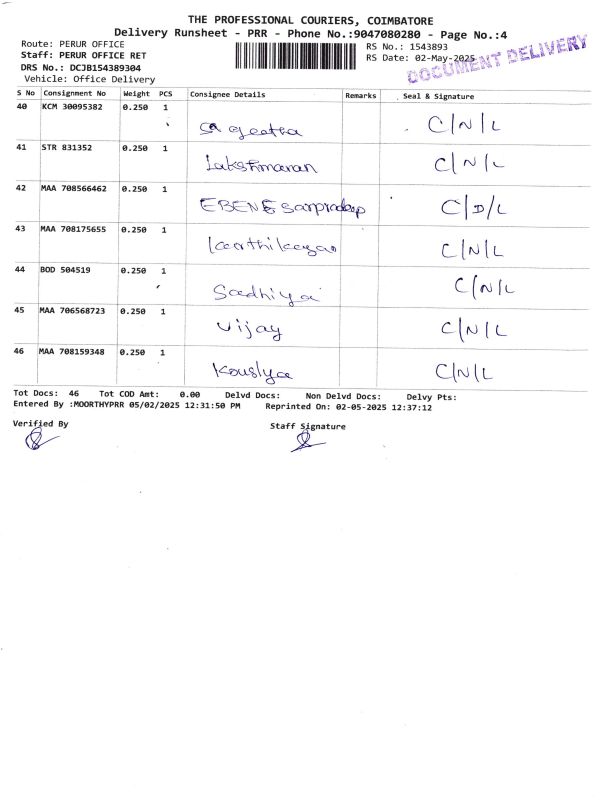 THE PROFESSIONAL COURIERS, COIMBATORE
Delivery Runsheet - PRR - Phone No.:9047080280 - Page No.:4
Route: PERUR OFFICE
Staff: PERUR OFFICE RET
DRS No.: DCJB154389304
Vehicle: Office Delivery
RS No.: 1543893
RS Date: 02-May-2025
DOCUMENT DELIVERY
S No Consignment No Weight PCS Consignee Details Remarks Seal & Signature
40 KCM 30095382 0.250 1 geetha C/N/L
41 STR 831352 0.250 1 Lakshmanan C/N/L
42 MAA 708566462 0.250 1 EBENE sanpradeep C/D/L
43 MAA 708175655 0.250 1 Karthikeyan C/N/L
44 BOD 504519 0.250 1 Sadhiya C/N/L
45 MAA 706568723 0.250 1 Vijay C/N/L
46 MAA 708159348 0.250 1 Kouslya C/N/L
Tot Docs: 46 Tot COD Amt: 0.00 Delvd Docs: Non Delvd Docs: Delvy Pts:
Entered By :MOORTHYPRR 05/02/2025 12:31:50 PM Reprinted On: 02-05-2025 12:37:12
Verified By Staff Signature